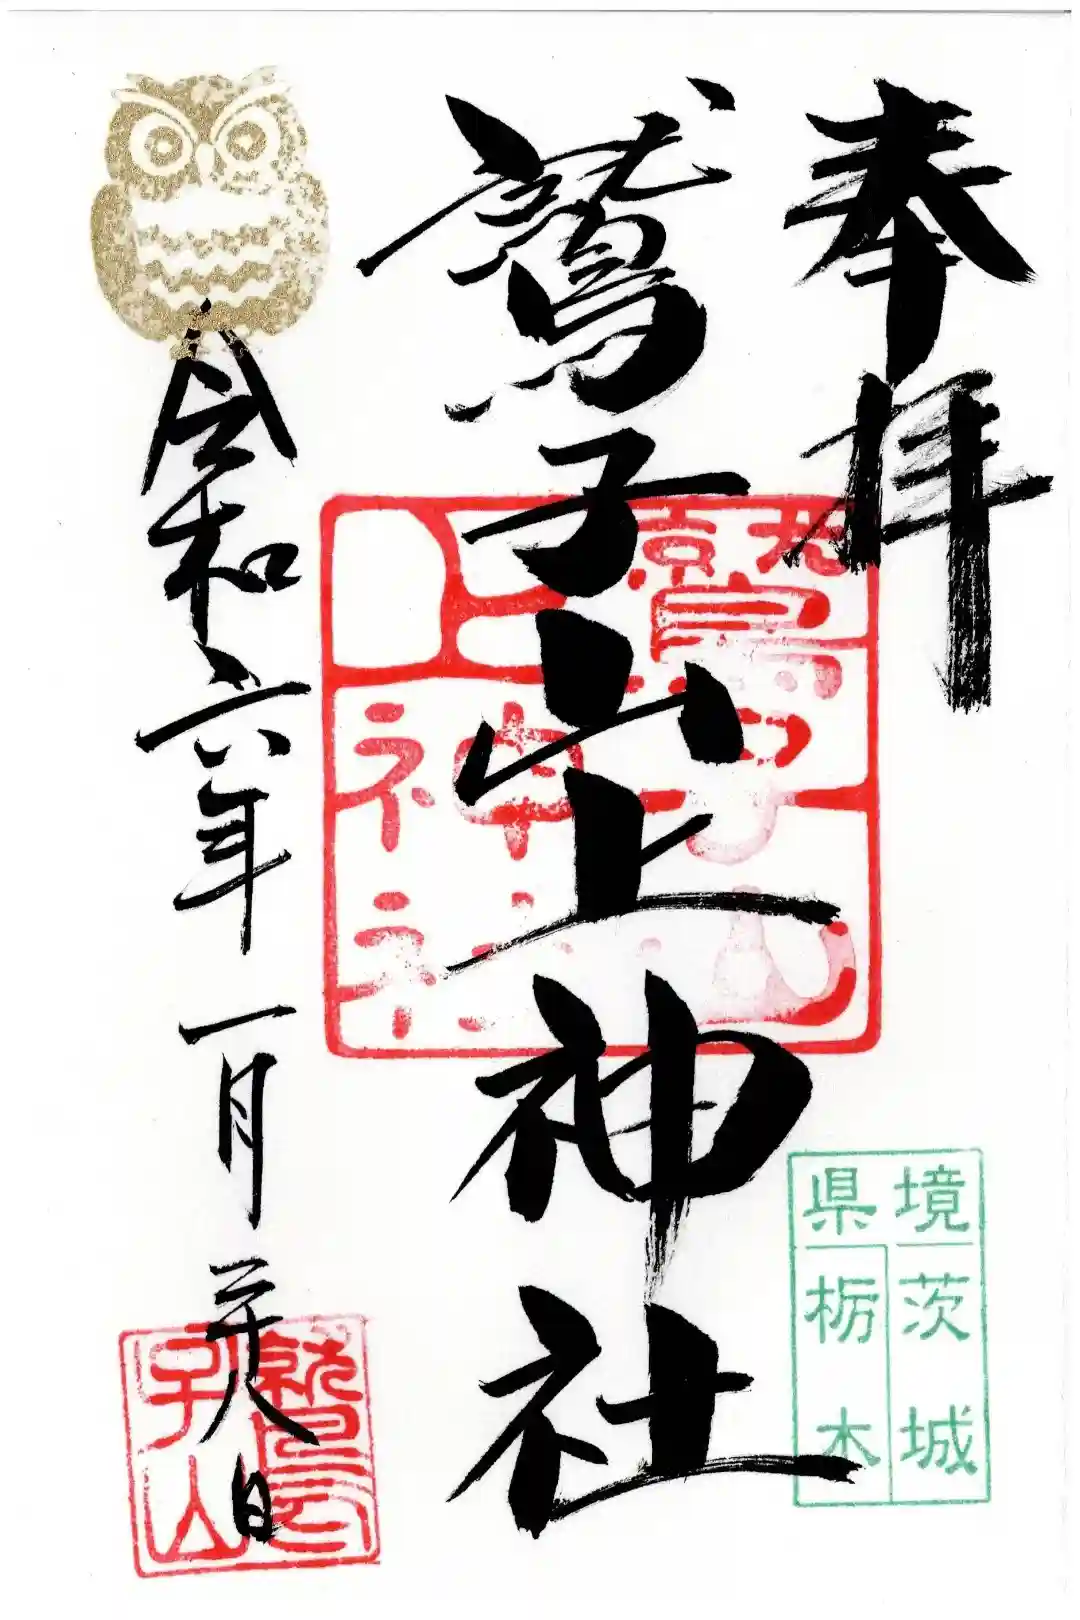 奉拝
鷲子山上神社
令和六年一月二十八日
鷲子山
上神社
県境
茨城
栃木
鷲
子山